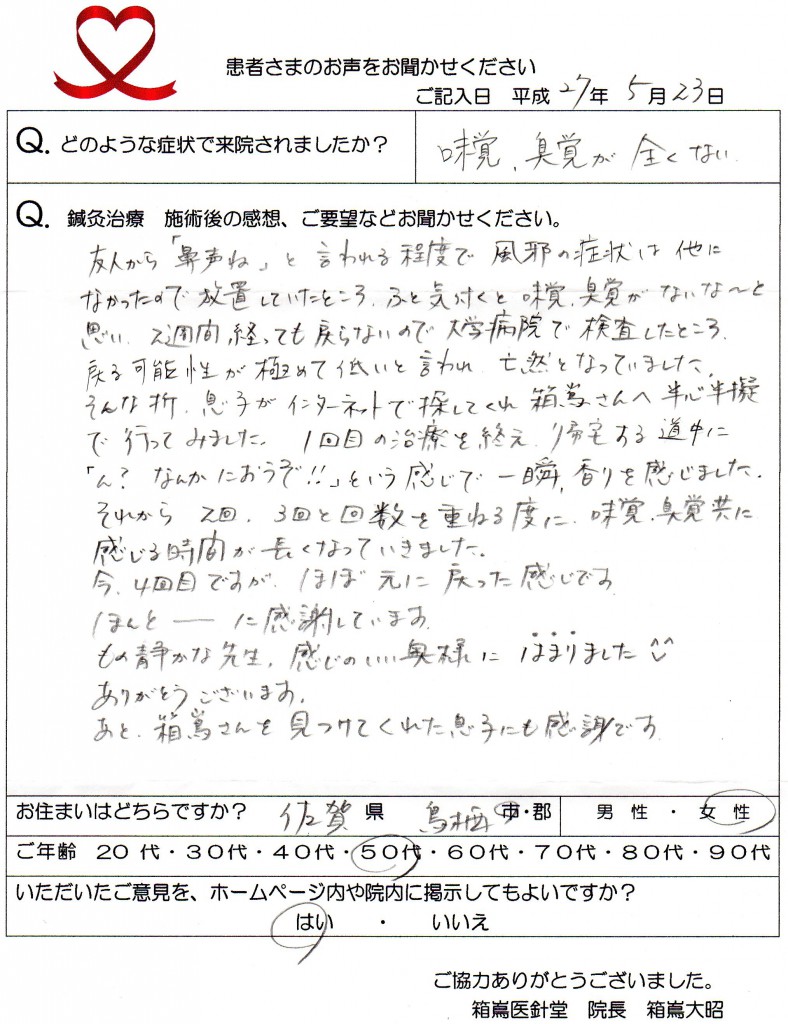 患者さまのお声をお聞かせください
ご記入日 平成27年 5月23日
Q. どのような症状で来院されましたか？
味覚、臭覚が 全くない
Q. 鍼灸治療 施術後の感想、ご要望などお聞かせください。
友人から「鼻声ね」と 言われる程度で 風邪の症状は 他に
なかったので 放置していたところ、ふと気付くと 味覚、臭覚がないな〜と
思い、2週間 経っても 戻らないので 大学病院で 検査したところ、
戻る可能性が 極めて 低いと 言われ、亡然となっていました。
そんな折、息子が インターネットで 探してくれ 箱嶌さんへ 半心半擬
で 行ってみました。 1回目の治療を終え、帰宅する 道中に
「ん？ なんかにおうぞ!!」という感じで 一瞬、香りを感じました。
それから 2回、3回と 回数を 重ねる度に、味覚、臭覚共に
感じる時間が 長くなっていきました。
今、4回目ですが、ほぼ 元に 戻った 感じです
ほんと ー に 感謝しています。
もの静かな先生、感じのいい 奥様に はまりました ^^
ありがとうございます。
あと、箱嶌さんを 見つけてくれた 息子にも 感謝です
お住まいはどちらですか？ 佐賀 県 鳥栖 市・郡 男 性 ・ 女 性
ご年齢 20代・30代・40代・50代・60代・70代・80代・90代
いただいたご意見を、ホームページ内や院内に掲示してもよいですか？
はい ・ いいえ
ご協力ありがとうございました。
箱嶌医針堂 院長 箱嶌大昭